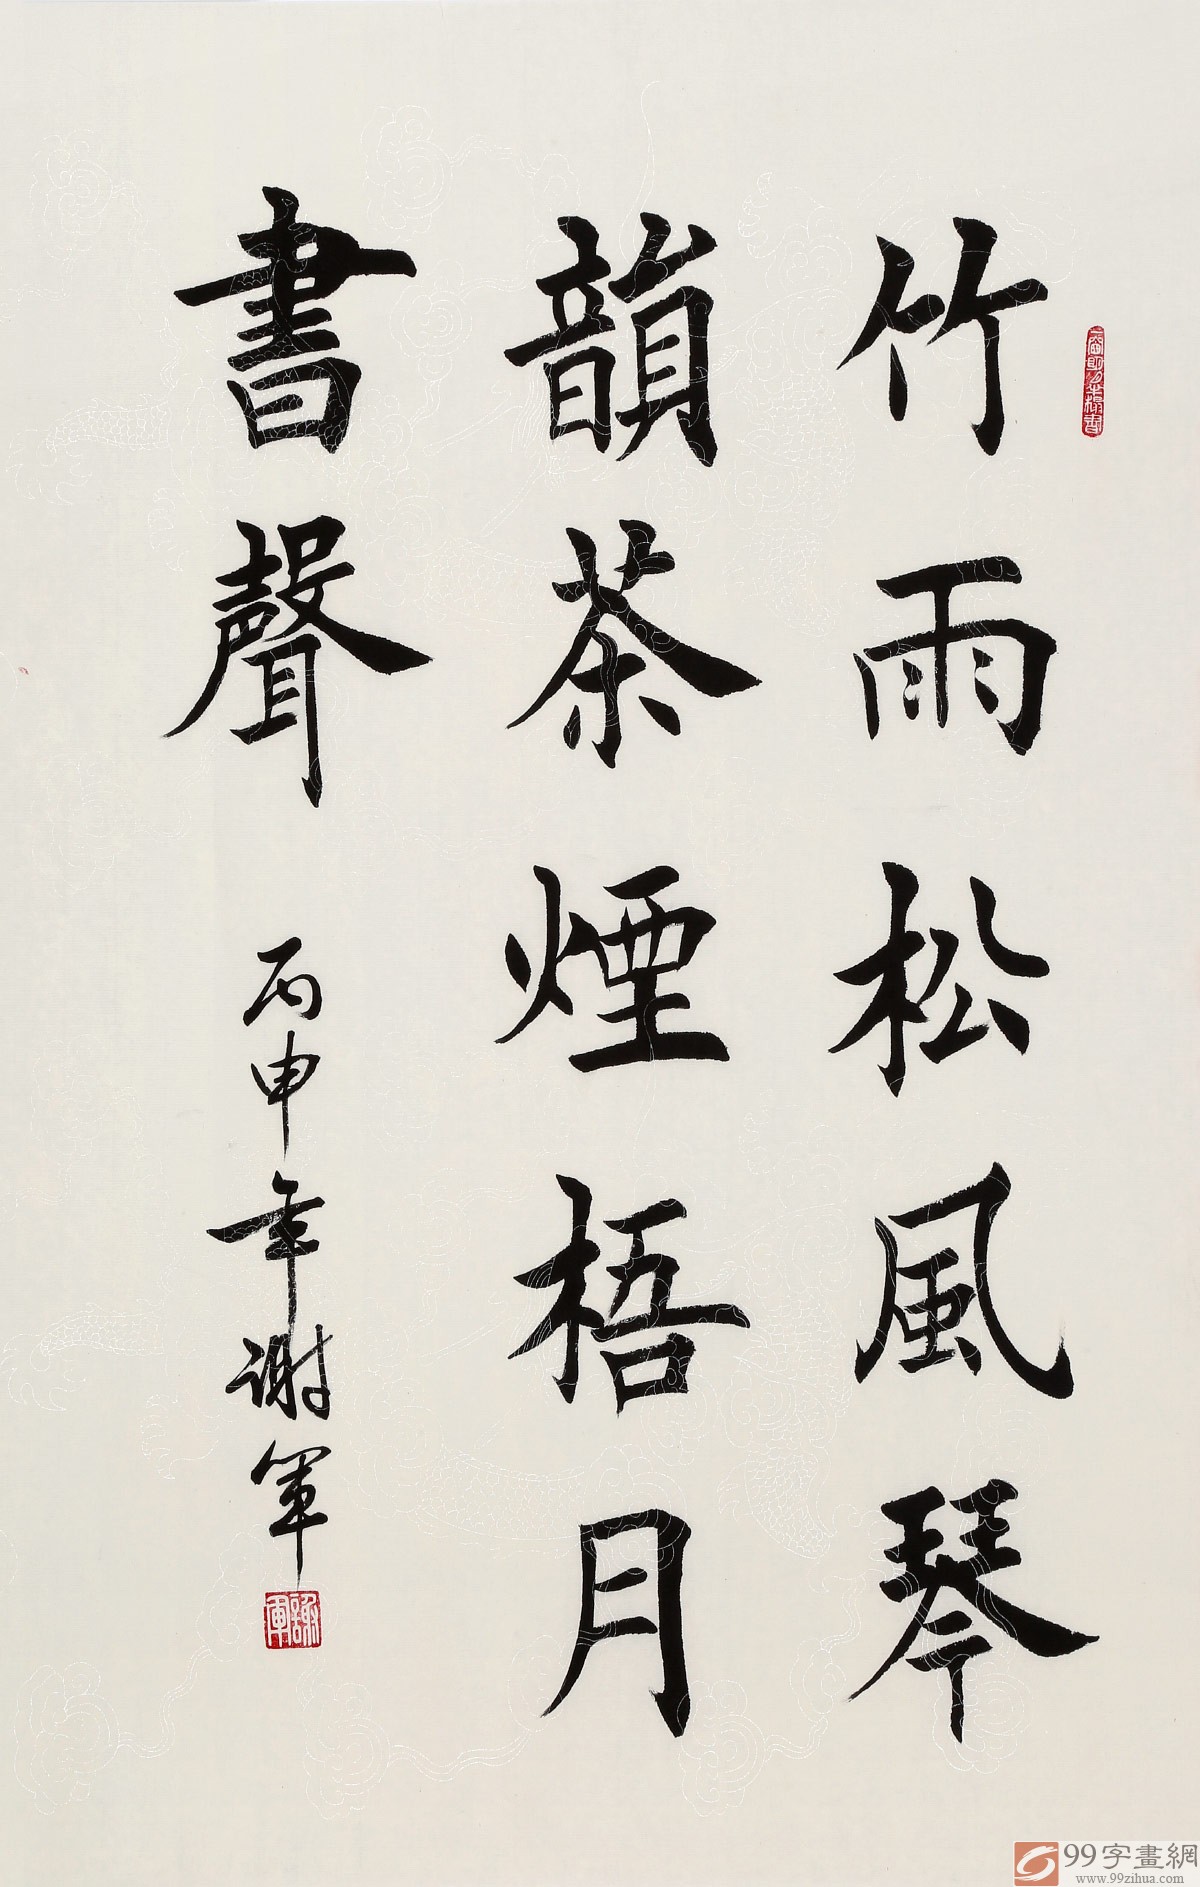 竹雨松風琴
韻茶煙梧月
書聲
丙申年谢军
謝軍
99字畫網
www.99zihua.com